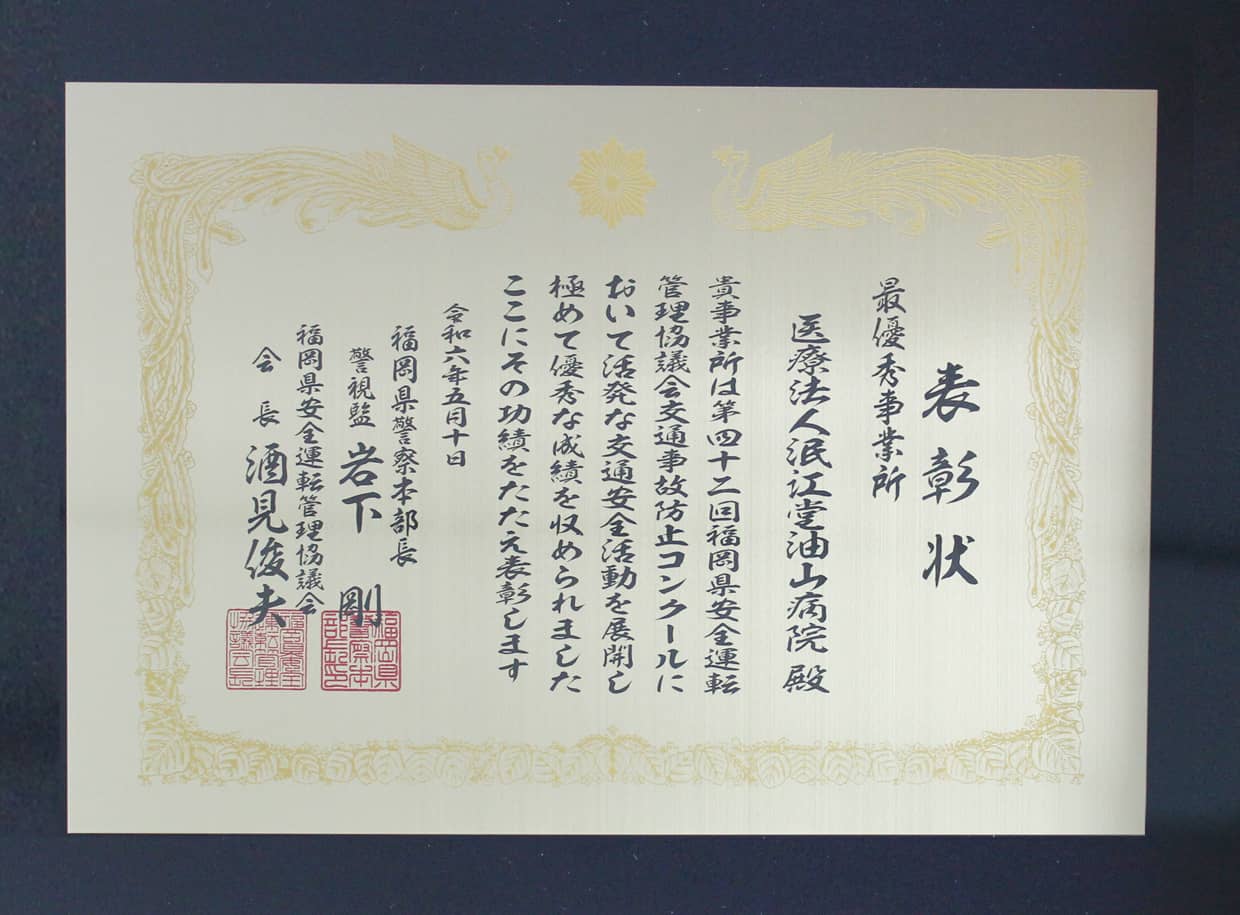 表彰状
最優秀事業所
医療法人泯江堂油山病院 殿
貴事業所は第四十二回福岡県安全運転
管理協議会交通事故防止コンクールに
おいて活発な交通安全活動を展開し
極めて優秀な成績を収められました
ここにその功績をたたえ表彰します
令和六年五月十日
福岡県警察本部長
警視監 岩下 剛
福岡県安全運転管理協議会
会長 酒見俊夫